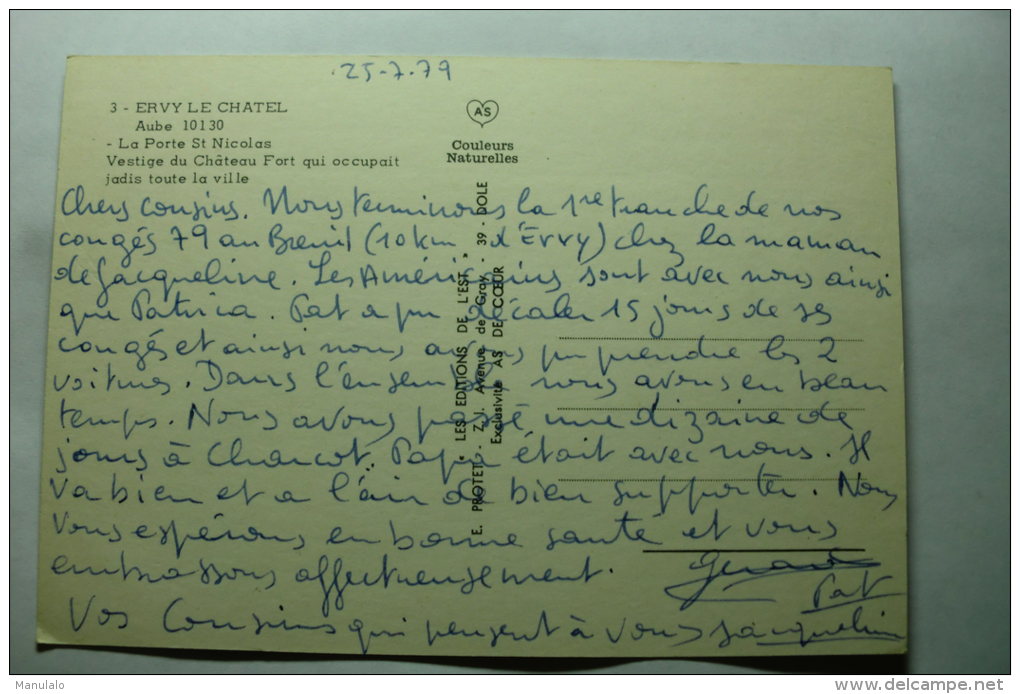 25-7-79
3 - ERVY LE CHATEL
Aube 10130
- La Porte St Nicolas
Vestige du Château Fort qui occupait
jadis toute la ville
AS
Couleurs
Naturelles
Chers cousins. Nous terminons la 1re tranche de nos
congés 79 au Breuil (10 km d'Ervy) chez la maman
de Jacqueline. Les Américains sont avec nous ainsi
que Patricia. Pat a pu décaler 15 jours de ses
congés et ainsi nous avons pu prendre les 2
voitures. Dans l'ensemble nous avons eu beau
temps. Nous avons passé une dizaine de
jours à Charcot. Papa était avec nous. Il
va bien et a l'air de bien supporter. Nous
vous espérons en bonne santé et vous
embrassons affectueusement.
Gérard
Pat
Vos Cousins qui pensent à vous Jacqueline
E. PROTET - « LES EDITIONS DE L'EST »
Z.I. Avenue de Gray - 39 - DOLE
Exclusivité AS DE CŒUR
Manulalo
delcampe.net